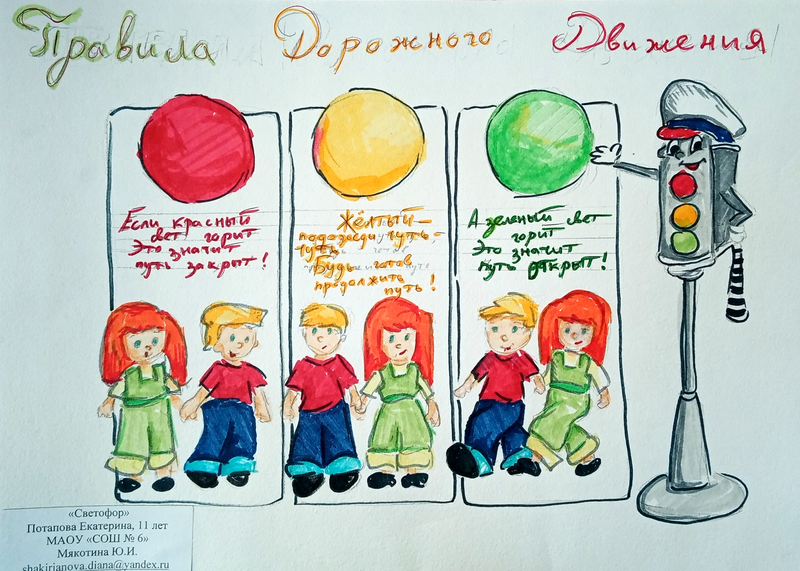 Правила Дорожного Движения
Если красный
свет горит
Это значит
путь закрыт!
Жёлтый –
подозжди чуть-
чуть
Будь готов
продолжить
путь!
А зеленый свет
горит
Это значит
путь открыт!
«Светофор»
Потапова Екатерина, 11 лет
МАОУ «СОШ № 6»
Мякотина Ю.И.
shakirianova.diana@yandex.ru